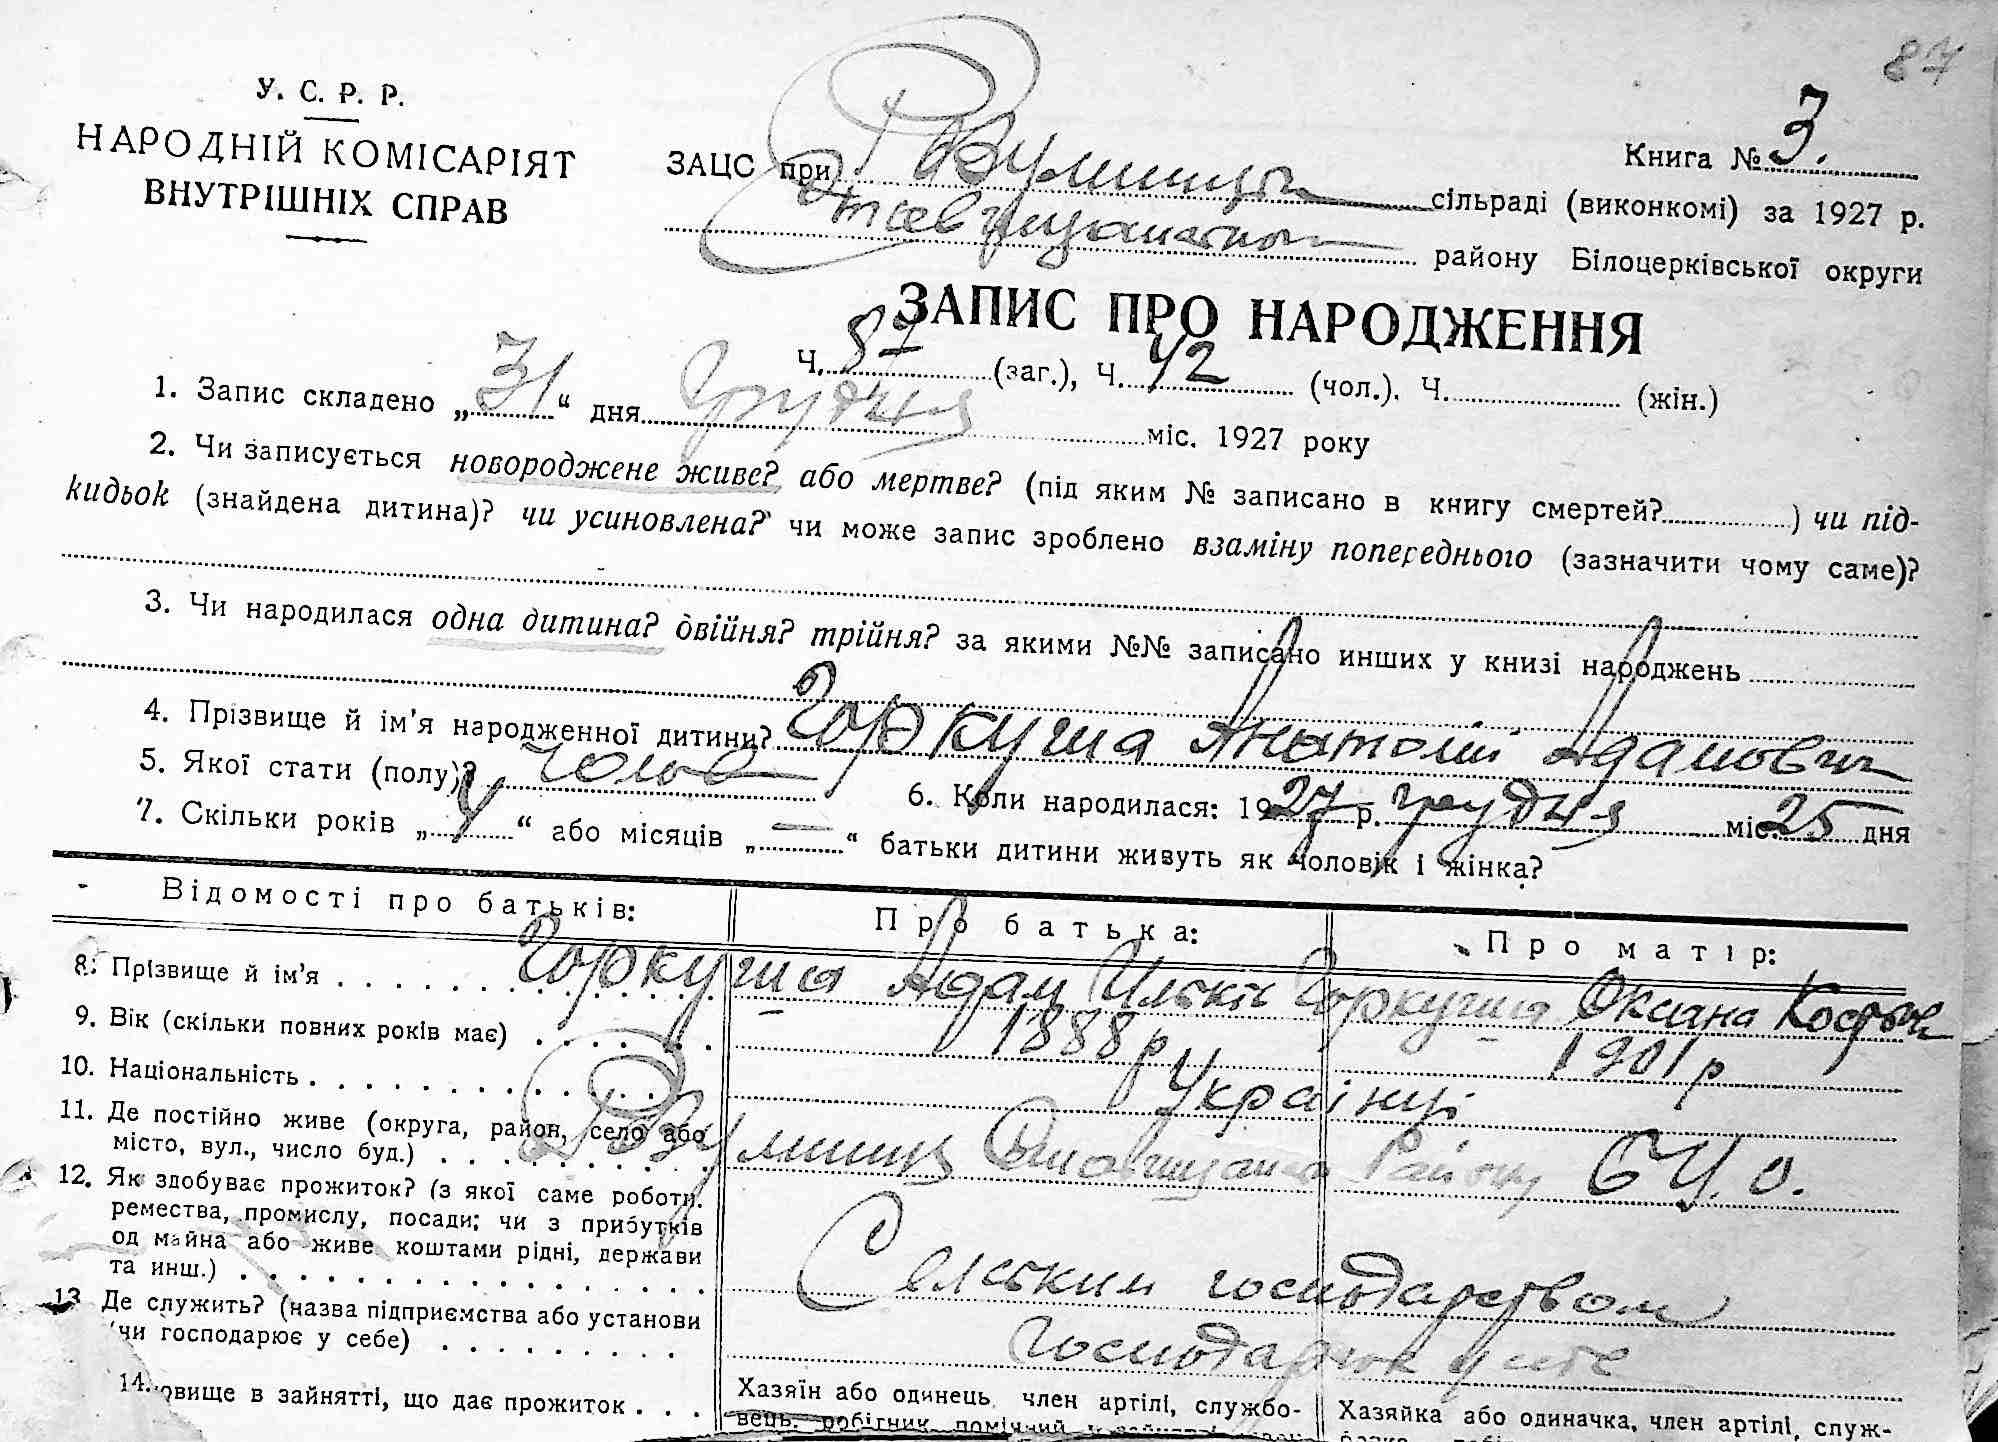 87
У. С. Р. Р.
НАРОДНІЙ КОМІСАРІЯТ
ВНУТРІШНІХ СПРАВ
Книга № 3.
ЗАЦС при Розумниць сільраді (виконкомі) за 1927 р.
району Білоцерківської округи
ЗАПИС ПРО НАРОДЖЕННЯ
Ч. 87 (заг.), Ч. 42 (чол.). Ч. (жін.)
1. Запис складено „31“ дня Грудня міс. 1927 року
2. Чи записується новороджене живе? або мертве? (під яким № записано в книгу смертей? ) чи під-
кидьок (знайдена дитина)? чи усиновлена? чи може запис зроблено взаміну попереднього (зазначити чому саме)?
3. Чи народилася одна дитина? двійня? трійня? за якими №№ записано инших у книзі народжень
4. Прізвище й ім'я народженної дитини? Горкуша Анатолій Адамович
5. Якої стати (полу)? Чолов 6. Коли народилася: 1927 р. грудня міс. 25 дня
7. Скільки років „4“ або місяців „—“ батьки дитини живуть як чоловік і жінка?
Відомості про батьків: Про батька: Про матір:
8. Прізвище й ім'я Горкуша Адам Ількіч Горкуша Оксана
9. Вік (скільки повних років має) 1888 р 1901 р
10. Національність Українці
11. Де постійно живе (округа, район, село або
місто, вул., число буд.) Розумниц Району БЦ. о.
12. Як здобуває прожиток? (з якої саме роботи.
ремества, промислу, посади; чи з прибутків
од майна або живе коштами рідні, держави
та инш.) Сельським господарством
13 Де служить? (назва підприємства або установи
чи господарює у себе)
14. овище в зайнятті, що дає прожиток
Хазяїн або одинець, член артілі, службо-
вець, робітник, помічний
Хазяйка або одиначка, член артілі, служ-